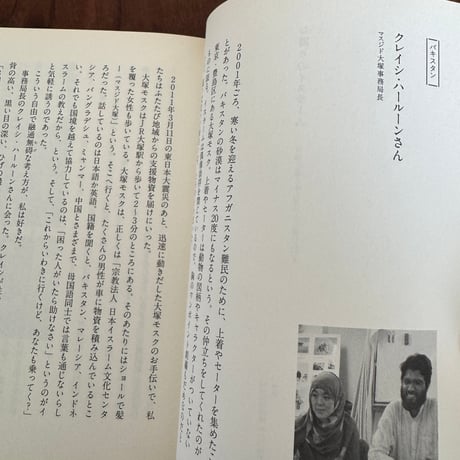 パキスタン
クレイシ・ハールーンさん
マスジド大塚事務局長
2001年ごろ、寒い冬を迎えるアフガニスタン難民のために、上着やセーターを集めた
とがあった。パキスタンの砂漠はマイナス20度にもなるという。その仲立ちをしてくれたのが
東京・豊島区にある大塚モスク。上着やセーターは動物の図柄やキャラクターがついていない
2011年3月11日の東日本大震災のあと、迅速に動きだした大塚モスクのお手伝いで、私
たちはふたたび地域からの支援物資を届けにいった。
大塚モスクはJR大塚駅から歩いて2〜3分のところにある。そのあたりにはショールで髪
を覆った女性も歩いている。大塚モスクは、正しくは「宗教法人 日本イスラーム文化センタ
ー(マスジド大塚)」という。そこへ行くと、たくさんの男性が車に物資を積み込んでいるとこ
ろだった。話しているのは日本語か英語、国籍を聞くと、パキスタン、マレーシア、インドネ
シア、バングラデシュ、ミャンマー、中国とさまざまで、母国語同士では言葉も通じないらし
い。それでも国境を越えて協力しているのは、「困った人がいたら助けなさい」というのがイ
スラームの教えだから、という。そして、「これからいわきに行くけど、あなたも乗ってく?」
と気軽に誘うのであった。
こういう自由で融通無碍な考え方が、私は好きだ。
事務局長のクレイシ・ハールーンさんに会った。
背の高い、黒い目の深い、ひげの